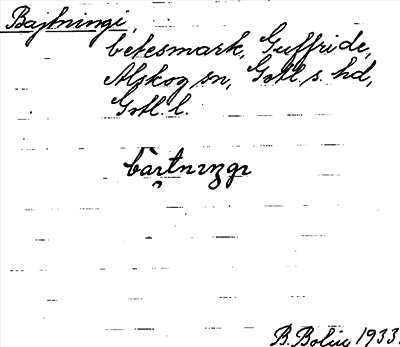 Bajtningi,
betesmark, Guffride,
Alskog sn, Gotl. s. hd,
Gotl. l.
B. Bolin 1933.